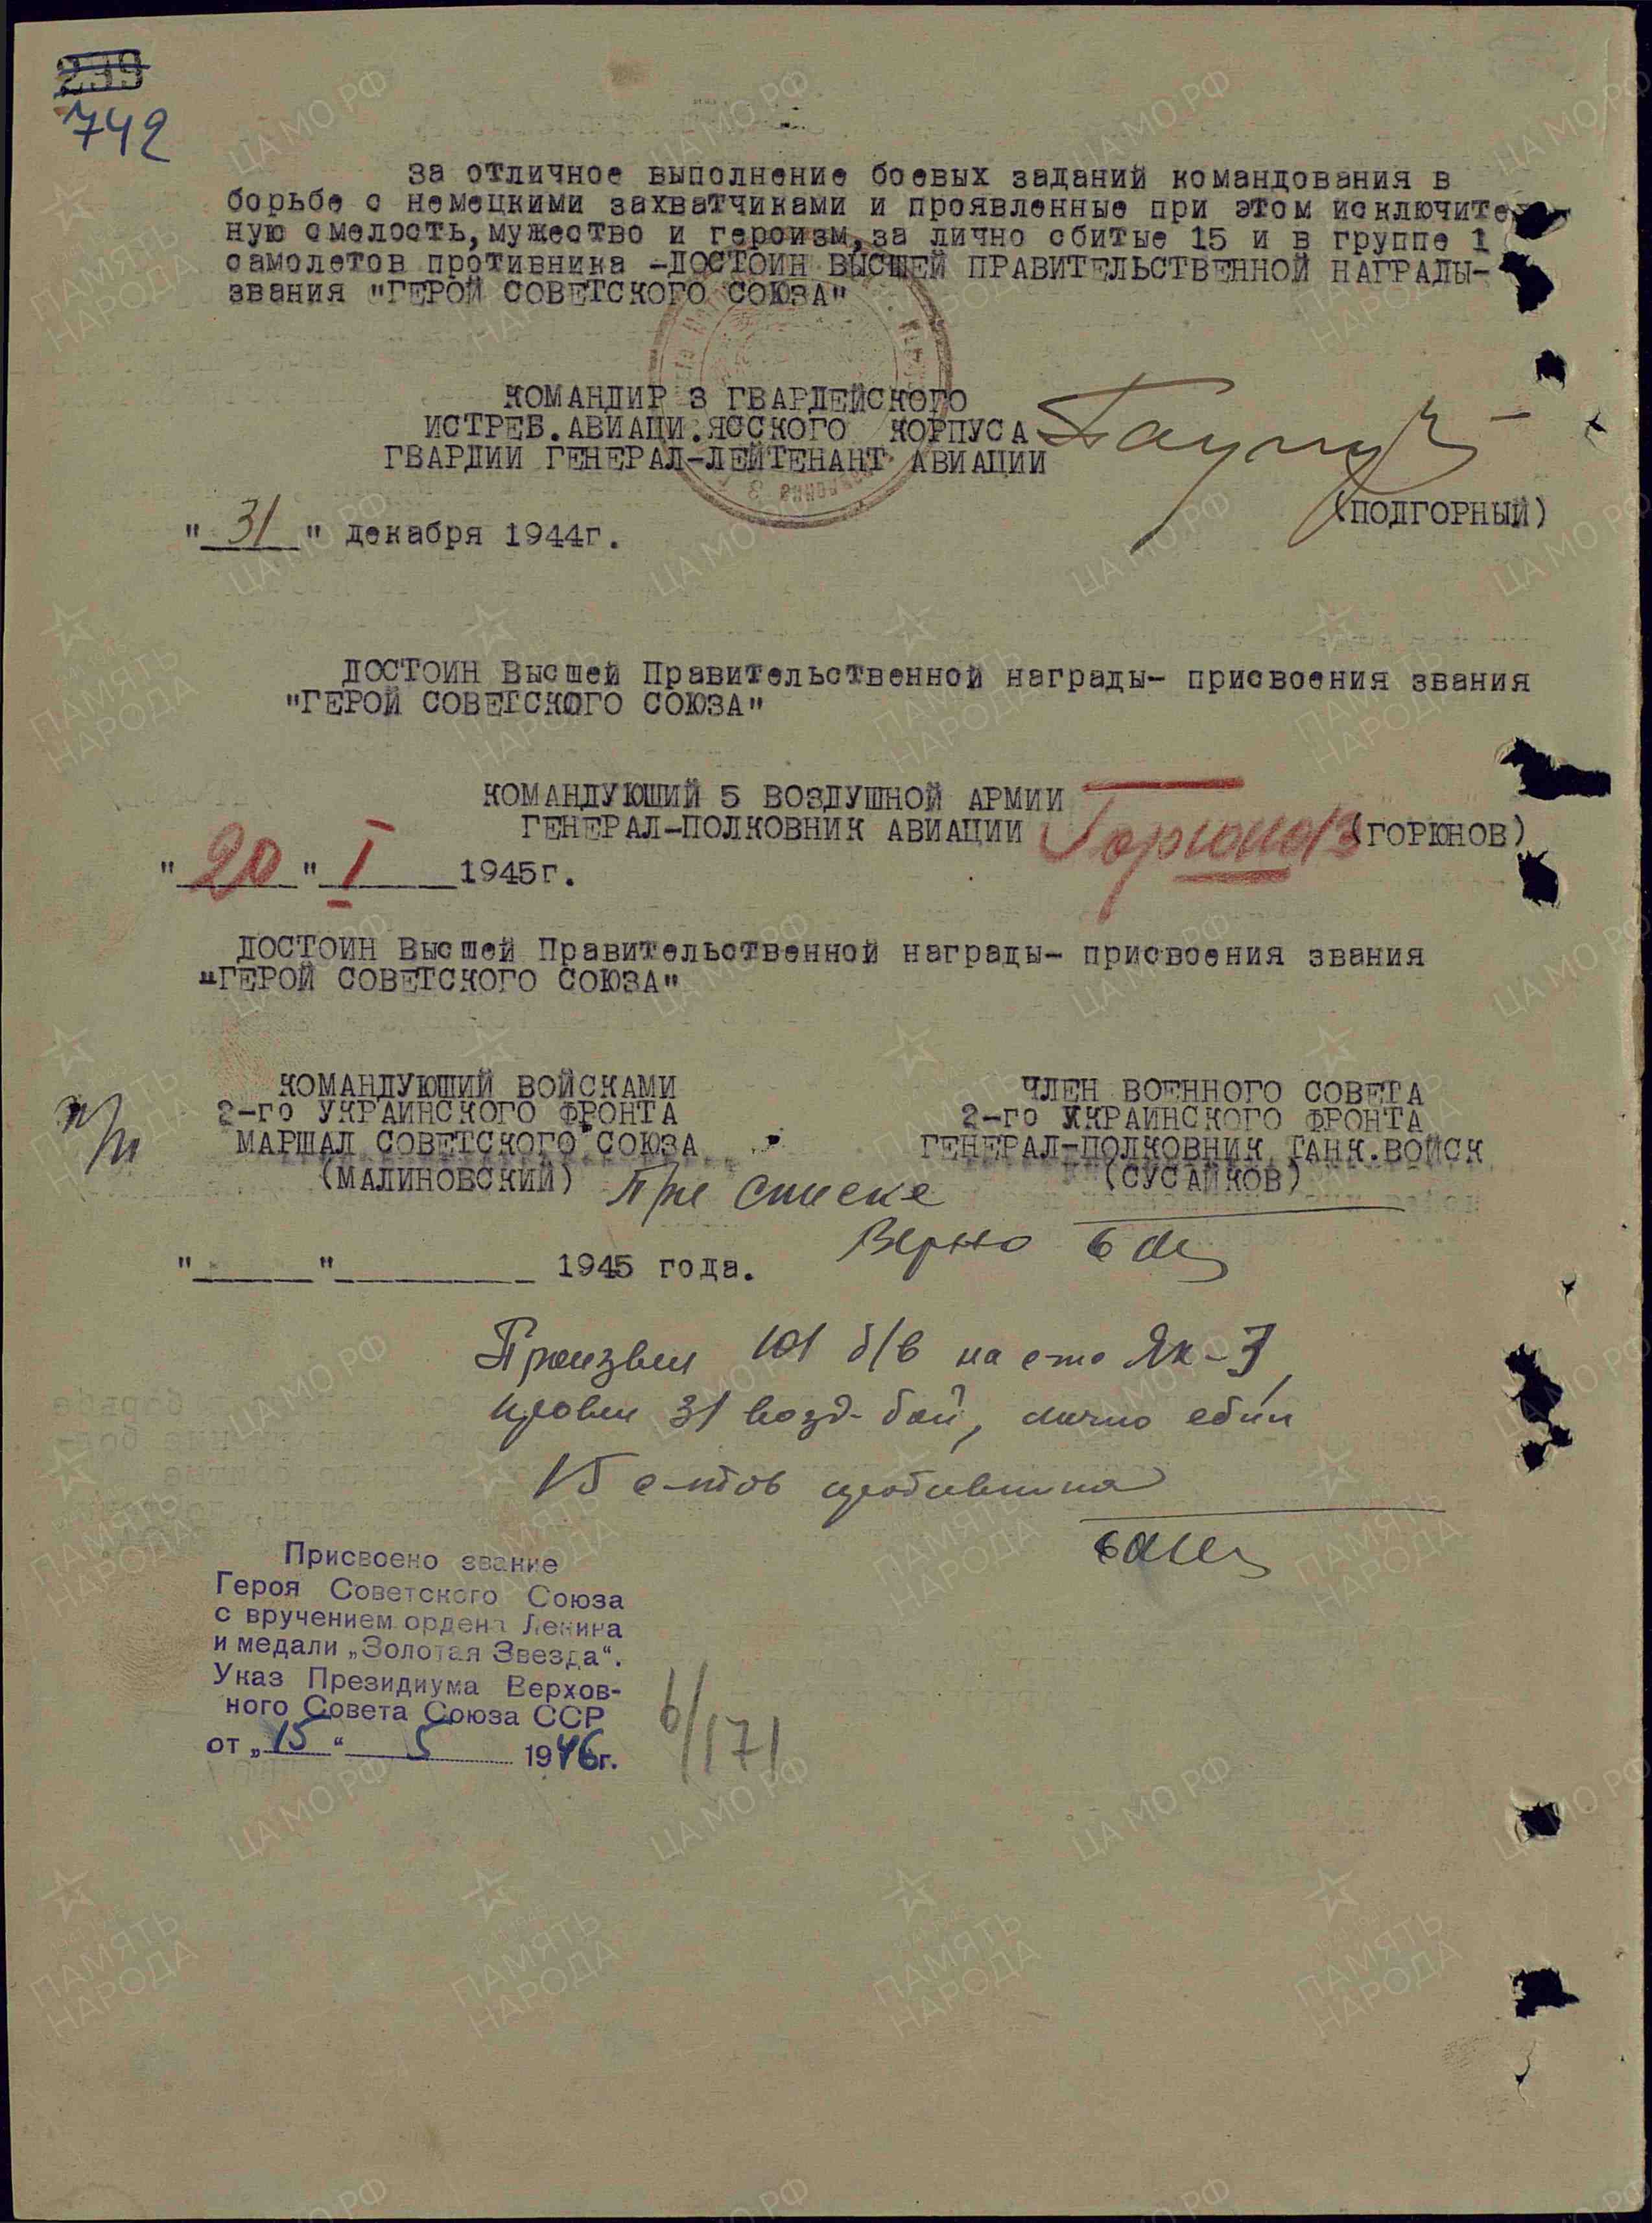 239
742
за отличное выполнение боевых заданий командования в
борьбе с немецкими захватчиками и проявленные при этом исключите
ную смелость, мужество и героизм, за лично сбитые 15 и в группе 1
самолетов противника -ДОСТОИН ВЫСШЕЙ ПРАВИТЕЛЬСТВЕННОЙ НАГРАДЫ-
звания "ГЕРОЙ СОВЕТСКОГО СОЮЗА"
КОМАНДИР 3 ГВАРДЕЙСКОГО
ИСТРЕБ.АВИАЦИ.ЯССКОГО КОРПУСА
ГВАРДИИ ГЕНЕРАЛ-ЛЕЙТЕНАНТ АВИАЦИИ
(ПОДГОРНЫЙ)
"31" декабря 1944г.
ДОСТОИН Высшей Правительственной награды- присвоения звания
"ГЕРОЙ СОВЕТСКОГО СОЮЗА"
КОМАНДУЮЩИЙ 5 ВОЗДУШНОЙ АРМИИ
ГЕНЕРАЛ-ПОЛКОВНИК АВИАЦИИ Горюнов (ГОРЮНОВ)
"20" I 1945г.
ДОСТОИН Высшей Правительственной награды- присвоения звания
"ГЕРОЙ СОВЕТСКОГО СОЮЗА"
КОМАНДУЮЩИЙ ВОЙСКАМИ
2-го УКРАИНСКОГО ФРОНТА
МАРШАЛ СОВЕТСКОГО СОЮЗА
(МАЛИНОВСКИЙ)
ЧЛЕН ВОЕННОГО СОВЕТА
2-го УКРАИНСКОГО ФРОНТА
ГЕНЕРАЛ-ПОЛКОВНИК ТАНК.ВОЙСК
(СУСАЙКОВ)
п/п
При списке
Верно
"____"________ 1945 года.
Произвел 101 б/в на с-те Як-3,
провел 31 возд. бой, лично сбил
15 с-тов противника
Присвоено звание
Героя Советского Союза
с вручением ордена Ленина
и медали „Золотая Звезда“.
Указ Президиума Верхов-
ного Совета Союза ССР
от „15“ 5 1946г.
6/171
ЦА МО РФ
ПАМЯТЬ НАРОДА